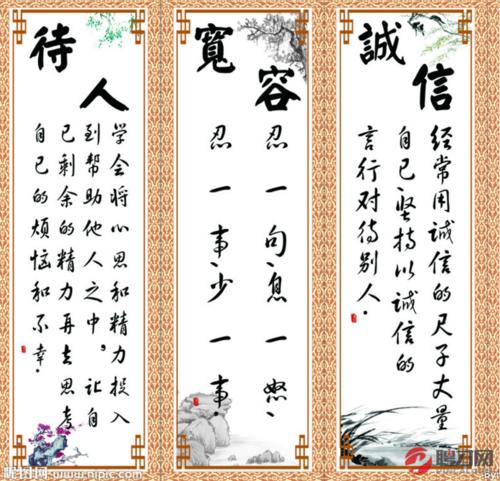 待人
学会将心思和精力投入
到帮助他人之中,让自
己剩余的精力再去思考
自己的烦恼和不幸.
寬容
忍一句、息一怒、
忍一事、少一事.
誠信
经常用诚信的尺子丈量
自己坚持以诚信的
言行对待别人.
昵图网 www.nipic.com